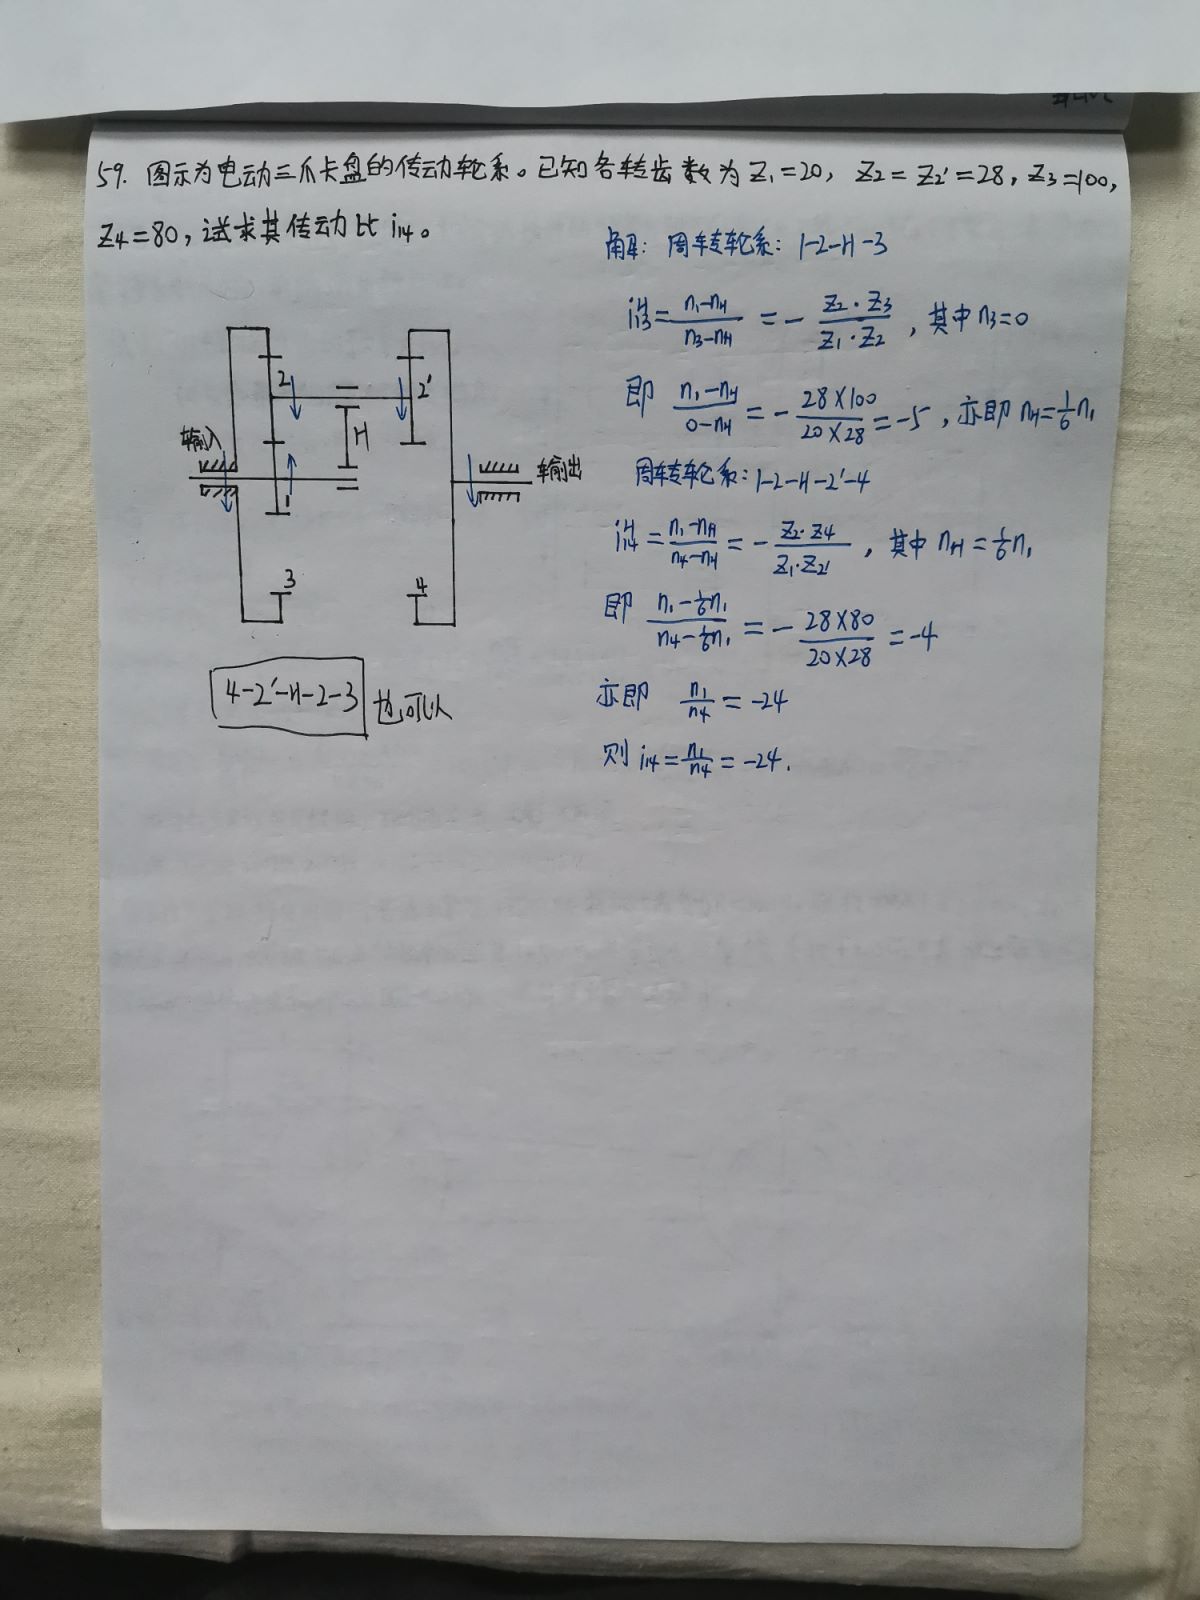 59. 图示为电动三爪卡盘的传动轮系。已知各转齿数为 Z₁=20, Z₂=Z₂'=28, Z₃=100,
Z₄=80, 试求其传动比 i₁₄。
解: 周转轮系: 1-2-H-3
i₁₃ᴴ = (n₁-nH)/(n₃-nH) = - (Z₂·Z₃)/(Z₁·Z₂), 其中 n₃=0
即 (n₁-nH)/(0-nH) = - (28×100)/(20×28) = -5, 亦即 nH = 1/6 n₁
周转轮系: 1-2-H-2'-4
i₁₄ᴴ = (n₁-nH)/(n₄-nH) = - (Z₂·Z₄)/(Z₁·Z₂'), 其中 nH = 1/6 n₁
即 (n₁-1/6 n₁)/(n₄-1/6 n₁) = - (28×80)/(20×28) = -4
亦即 n₁/n₄ = -24
则 i₁₄ = n₁/n₄ = -24.
2
2'
H
输入
输出
1
3
4
4-2'-H-2-3 也可以